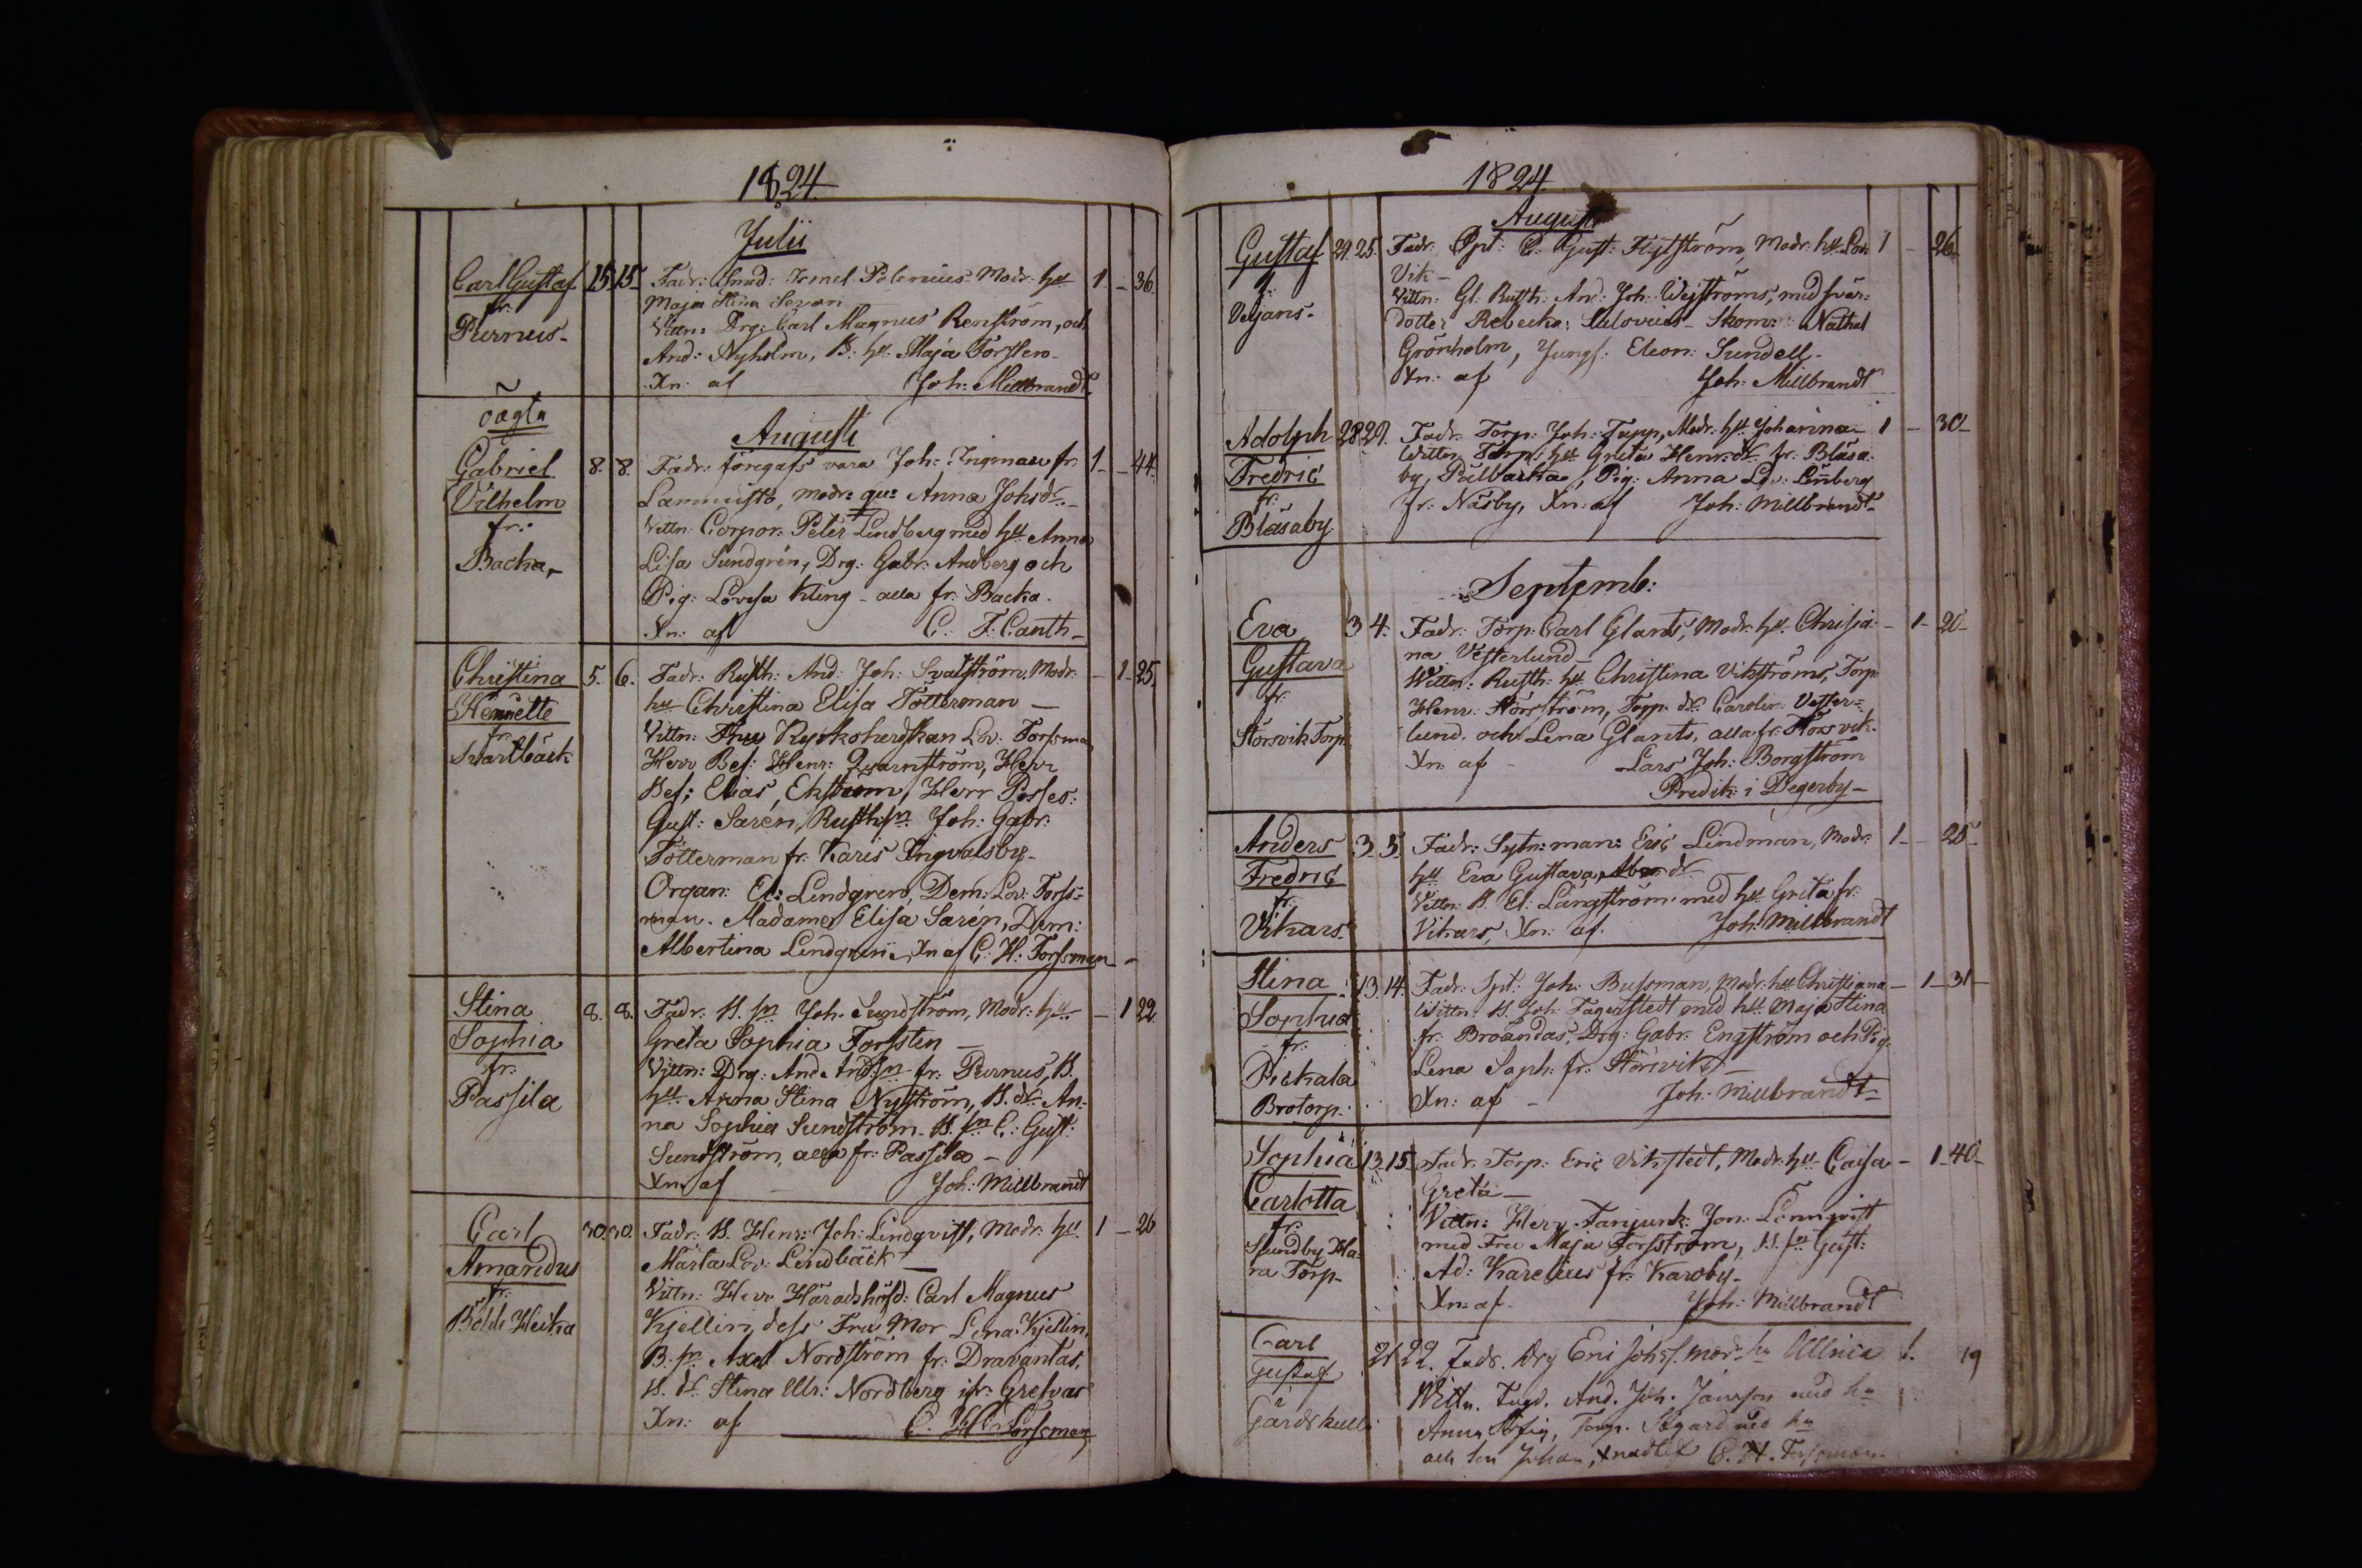 1824
Julii
Carl Gustaf 15. 15. Fadr: Smed: Israel Polenius Modr: hu 1 - 36.
fr:
Maja Stina
Purnus- Vittn: Drg: Carl Magnus Renström, och
And: Nyholm, B: hu Maja Forssten-
Xn: af Joh: Millbrandt
oägta
Augusti
Gabriel 8. 8. Fadr: föregafs vara Joh: Ingman fr: 1 - 44
Vilhelm modr: qu: Anna Johsdr-
fr: Vittn: Corpor: Peter Lindberg med hu Anna
Backa- Lisa Sundgren, Drg: Gabr: Andberg och
Pig: Lovisa Kling - alla fr: Backa.
Xn: af C. F. Canth-
Christina 5. 6. Fadr: Rusth: And: Joh: Svalström, Modr: - 1 - 25.
Henriette hu Christina Elisa Tötterman -
fr: Vittn: Fru Kyrkoherdskan Lov: Forssman
Svartbäck Herr Bef: Henr: Qvarnström, Herr
Bef: Elias Ekström, Herr Posses:
Gust: Sarén, Rusth:sn Joh: Gabr:
Tötterman fr: Karis Ingvalsby-
Organ: El: Lindgren, Dem: Lov: Forss=
man. Madame Elisa Sarén, Dem:
Albertina Lindgren, Xn af C: H: Forssman -
Stina 8. 8. Fadr: B. sn Joh: Sundström, Modr: hu - 1 22.
Sophia Greta Sophia Forssten -
fr: Vittn: Drg: And: And:sn fr: Purnus, B.
Passila hu Anna Stina Nyström, B. dr An-
na Sophia Sundström - B. sn C: Gust:
Sundström, alla fr: Passila -
Xn: af Joh: Millbrandt
Carl 30. 30. Fadr: B. Henr: Joh: Lindqvist, Modr: hu 1 - 26
Amandus Märta Lov: Lindbäck -
fr: Vittn: Herr Häradshöfd: Carl Magnus
Böhle Heika Kjellin, dess Fru Mor Lena Kjellin,
B. sn Axel Nordström fr: Dravantas,
B. dr Stina Ulr: Nordberg ifr: Grefvas
Xn: af C. H. Forssman
1824.
Augusti
Gustaf 24. 25. Fadr: Spt: C. Gust: Flytström, Modr: hu Lov: 1 - 26
fr: Vik -
Vejans- Vittn: Gl: Rusth: And: Joh: Wejströms, med svär-
dotter Rebecka: - Skom: Nathal
Grönholm, Jungf: Eleon: Sundell-
Xn: af Joh: Millbrandt
Adolph 28 29. Fadr: Torp: Joh: Tapp, Modr: hu Johanna - 1 - 30
Fredric Wittn: Torp: hu Greta Henr:dr fr: Blåsa-
fr: by, Pig: Anna Lov: Linberg
Blåsaby fr: Näsby, Xn: af Joh: Millbrandt-
Septemb:
Eva 3 4. Fadr: Torp: Carl Glants, Modr: hu Christia- - 1 - 20-
Gustava na Vesterlund -
fr: Wittn: Rusth: hu Christina Vikströms, Torp:
Störsvik Torp Henr: Störström, Torp: dr Carolin: Vester=
lund. och Lena Glants, alla fr: Störsvik.
Xn: af - Lars Joh: Borgström
Predik: i Degerby-
Anders 3. 5. Fadr: Sytn:man: Eric Lindman, Modr: 1 - 25
Fredric hu Eva Gustava
fr: Vittn: B. El: Långström med hu Greta fr:
Vikars. Vikars, Xn: af. Joh: Millbrandt
Stina 13. 14. Fadr: Spt: Joh: Bussman, Modr: hu Christiana - 1 - 31
Sophia Wittn: B. Joh: Fagerstedt med hu Maja Stina
fr: fr: Broändas, Drg: Gabr: Engström och Pig:
Pickala Lena Soph: fr: Störsvik -
Brotorp. Xn: af - Joh: Millbrandt
Sophia 13 15. Fadr: Torp: Eric Vikstedt, Modr: hu Caisa - 1 - 40-
Carlotta Greta -
fr: Vittn: Herr Fanjunk: Jon: Lönnqvist
Sundby Ha- med Fru Maja Forsström, B. sn Gust:
ra Torp- Ad: Karelius fr: Karoby-
Xn: af- Joh: Millbrandt
Carl 21 22. Fadr. Drg Eric Johss. modr hu Ulrica 1. 19
Gustaf Wittn. And. Joh. Jansson med hu
Gårdskulla Anna Sofia, Torp. med hu
och son Johan, C. H. Forssman.